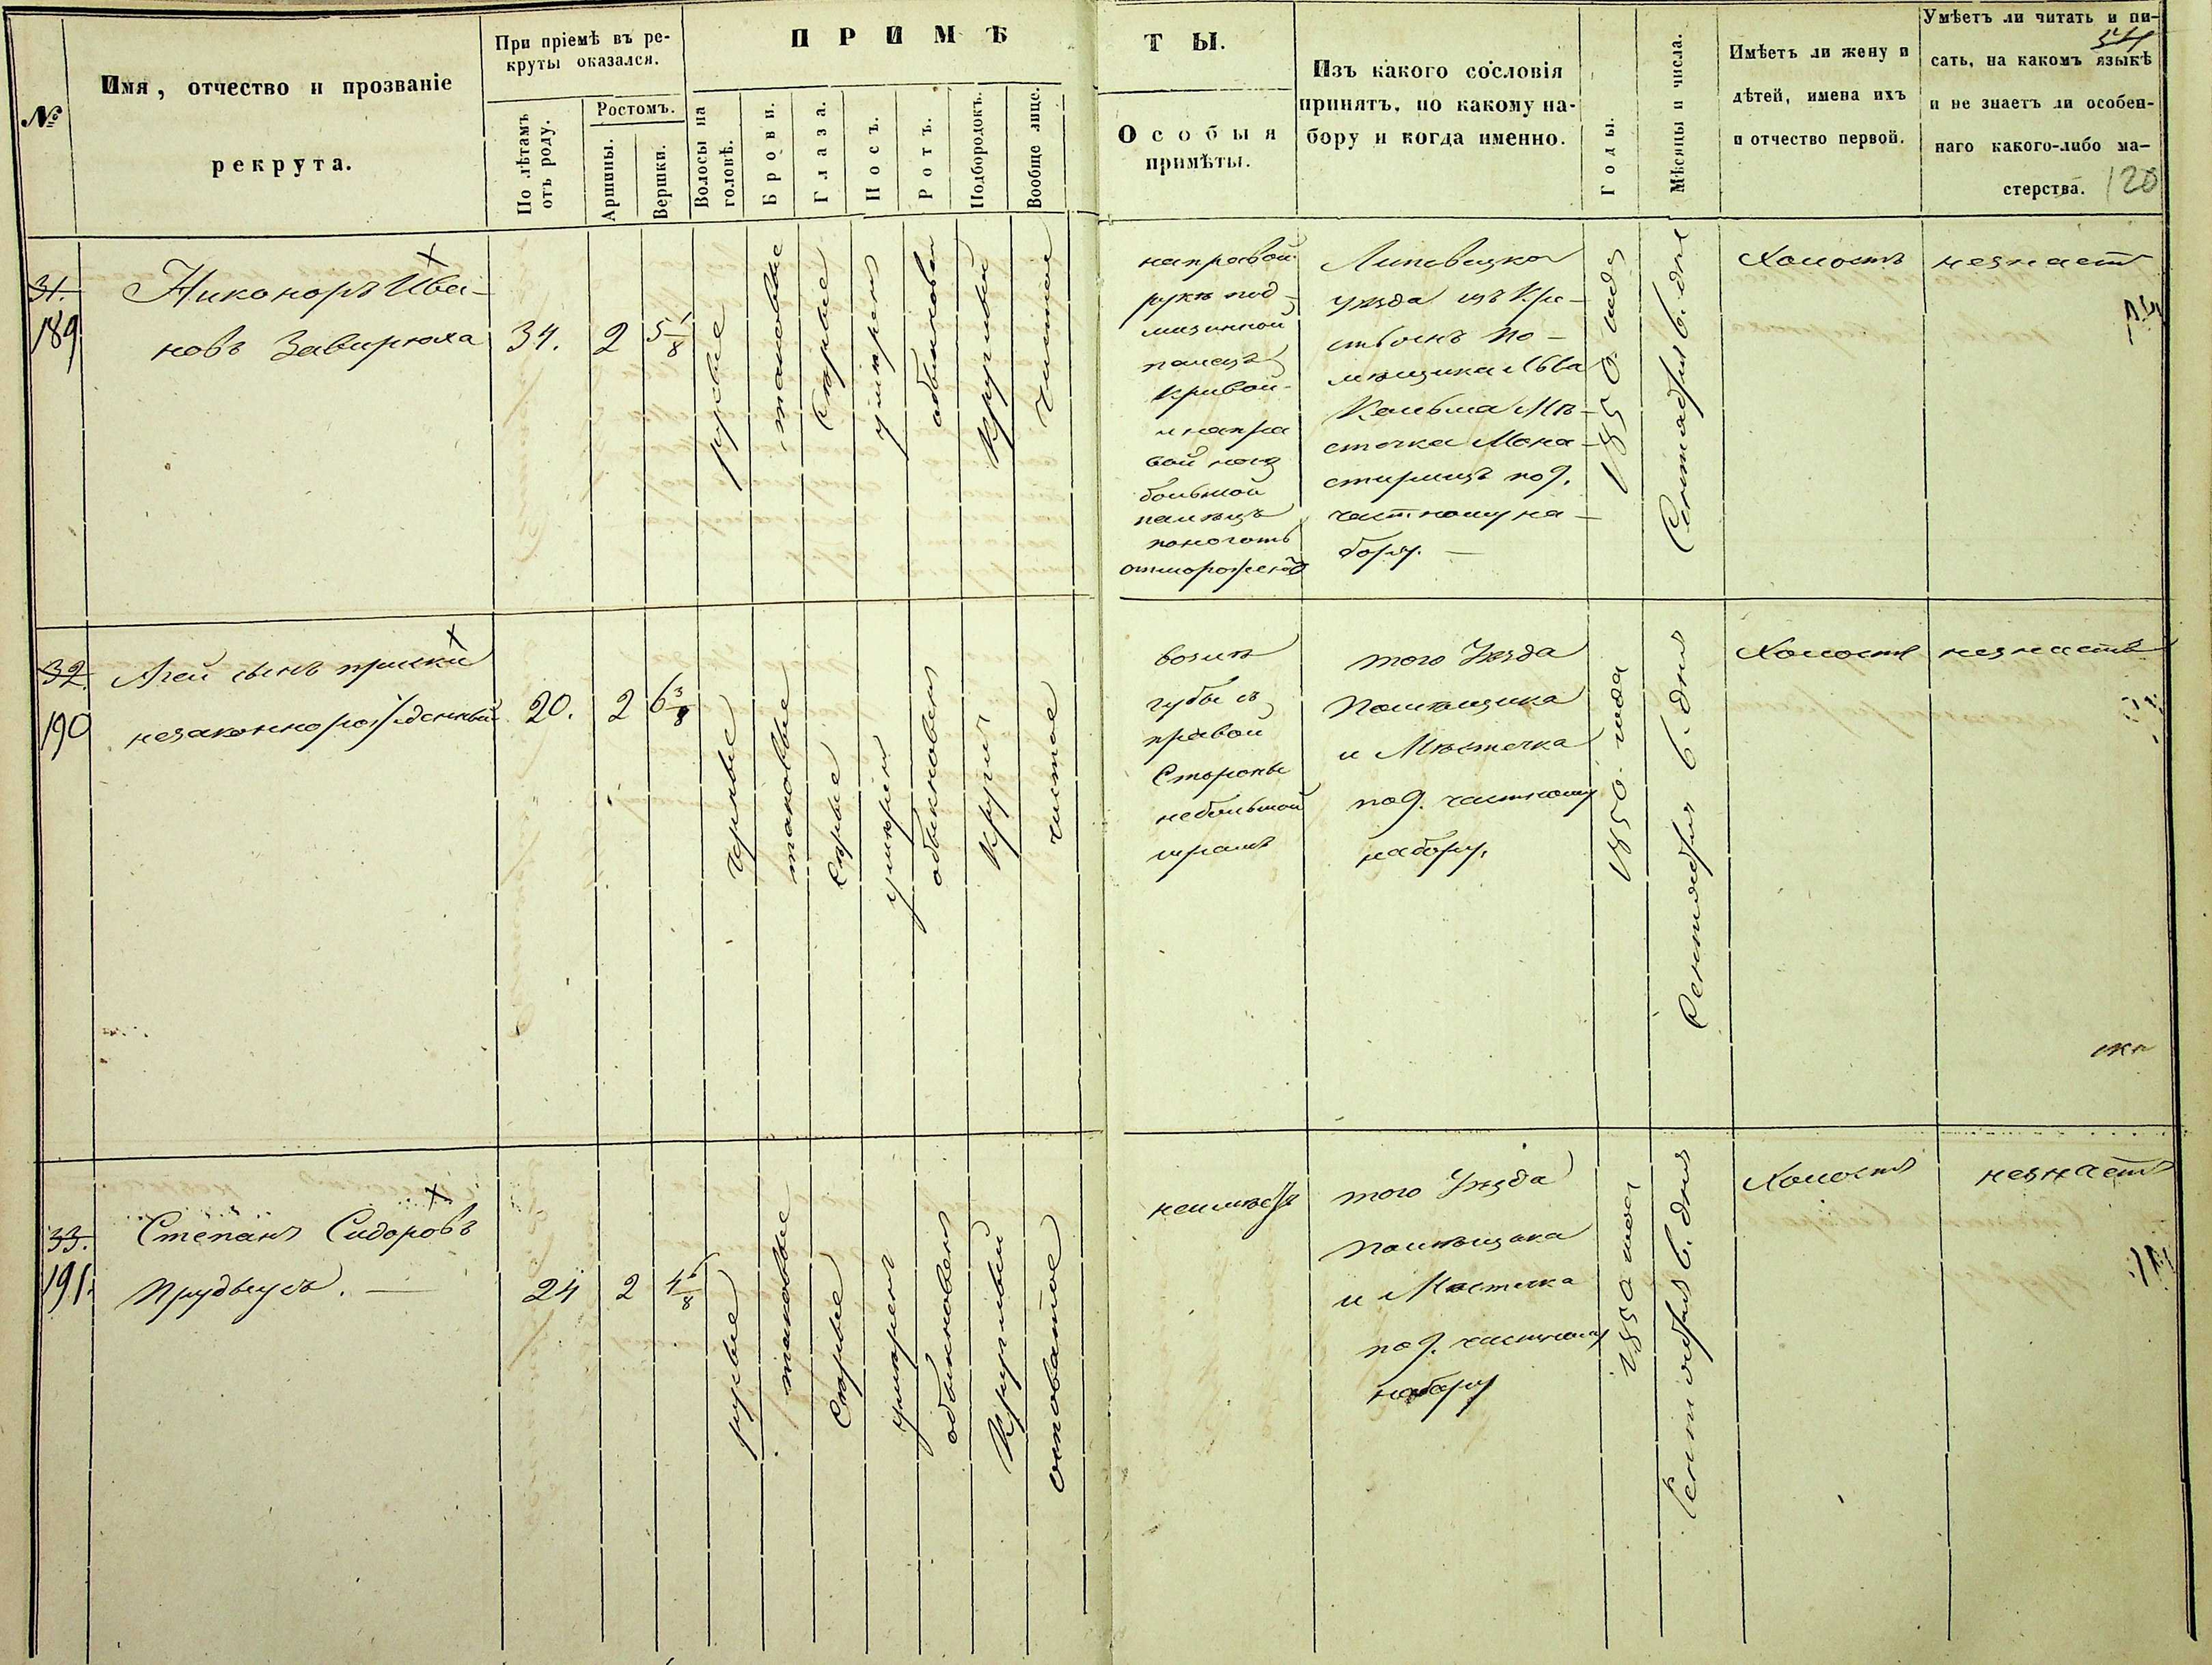 №
Имя, отчество и прозваніе
рекрута.
При пріемѣ въ ре-
круты оказался.
По лѣтамъ
отъ роду.
Ростомъ.
Аршины.
Вершки.
ПРИМѢ
Волосы на
головѣ.
Брови.
Глаза.
Носъ.
Ротъ.
Подбородокъ.
Вообще лице.
ТЫ.
Особыя
примѣты.
Изъ какого сословія
принятъ, по какому на-
бору и когда именно.
Годы.
Мѣсяцы и числа.
Имѣетъ ли жену и
дѣтей, имена ихъ
и отчество первой.
Умѣетъ ли читать и пи-
сать, на какомъ языкѣ
и не знаетъ ли особен-
наго какого-либо ма-
стерства.
120
31.
189
Никоноръ Ива-
новъ Завирюха
34.
2
5 1/8
русые
таковые
Сѣрые
умѣренъ
обыкновен
Круглый
Чистое
направой
рукѣ под
мизинной
палецъ
Кривой
и напра
вой ногѣ
большой
палецъ
поноготь
отмороженъ
Липовецкого
уѣзда изъ Кре-
стьянъ По-
мѣщика Льва
Мѣ-
стечка Мона-
стырищъ по 9.
частному на-
бору. —
1850 года
Сентября 6. дня
Холостъ
незнаетъ
32.
190
Агей сынъ
незаконнорожденный
20.
2
6 3/8
Черные
таковые
Сѣрые
умѣренъ
обыкновенъ
Круглъ
чистое
возлѣ
губы съ
правой
Стороны
небольшой
шрамъ
того Уѣзда
Помѣщика
и Мѣстечка
по 9. частному
набору.
1850 года
Сентября 6. дня
Холостъ
незнаетъ
33.
191.
Степанъ Сидоровъ
24
2
4 6/8
русые
таковые
Сѣрые
умѣренъ
обыкновенъ
Круглый
осповатое
неимѣетъ
того Уѣзда
Помѣщика
и Мѣстечка
по 9. частному
набору
1850 года
Сентября 6. дня
Холостъ
незнаетъ